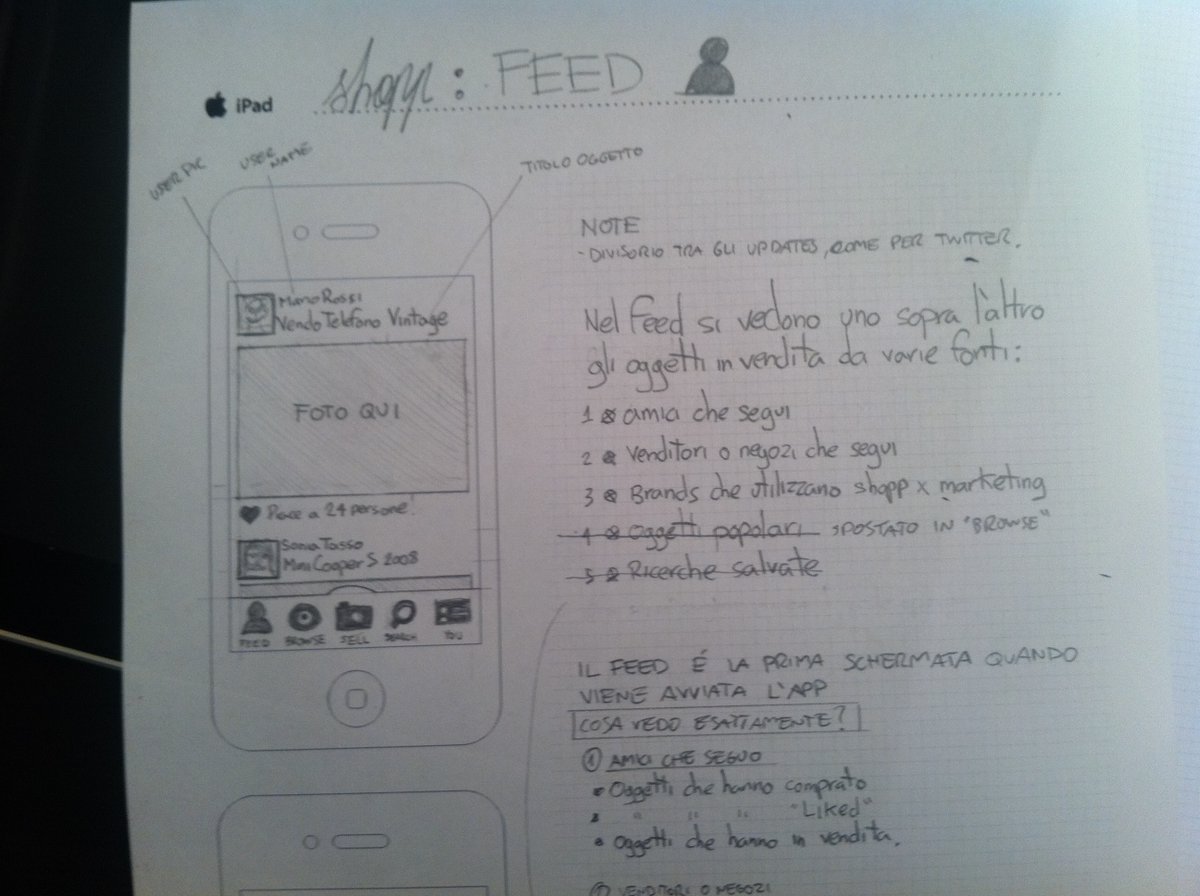 iPad
shopp: FEED
USER PIC
USER NAME
TITOLO OGGETTO
Mario Rossi
Vendo Telefono Vintage
FOTO QUI
Piace a 24 persone!
Sonia Tasso
Mini Cooper S 2008
FEED BROWSE SELL SEARCH YOU
NOTE
- DIVISORIO TRA GLI UPDATES, COME PER TWITTER.
Nel Feed si vedono uno sopra l'altro
gli oggetti in vendita da varie fonti:
1 amici che segui
2 Venditori o negozi che segui
3 Brands che utilizzano shopp x marketing
4 Oggetti popolari SPOSTATO IN "BROWSE"
5 Ricerche salvate
IL FEED É LA PRIMA SCHERMATA QUANDO
VIENE AVVIATA L'APP
COSA VEDO ESATTAMENTE?
① AMICI CHE SEGUO
• Oggetti che hanno comprato
• " " " "Liked"
• Oggetti che hanno in vendita.
VENDITORI O NEGOZI